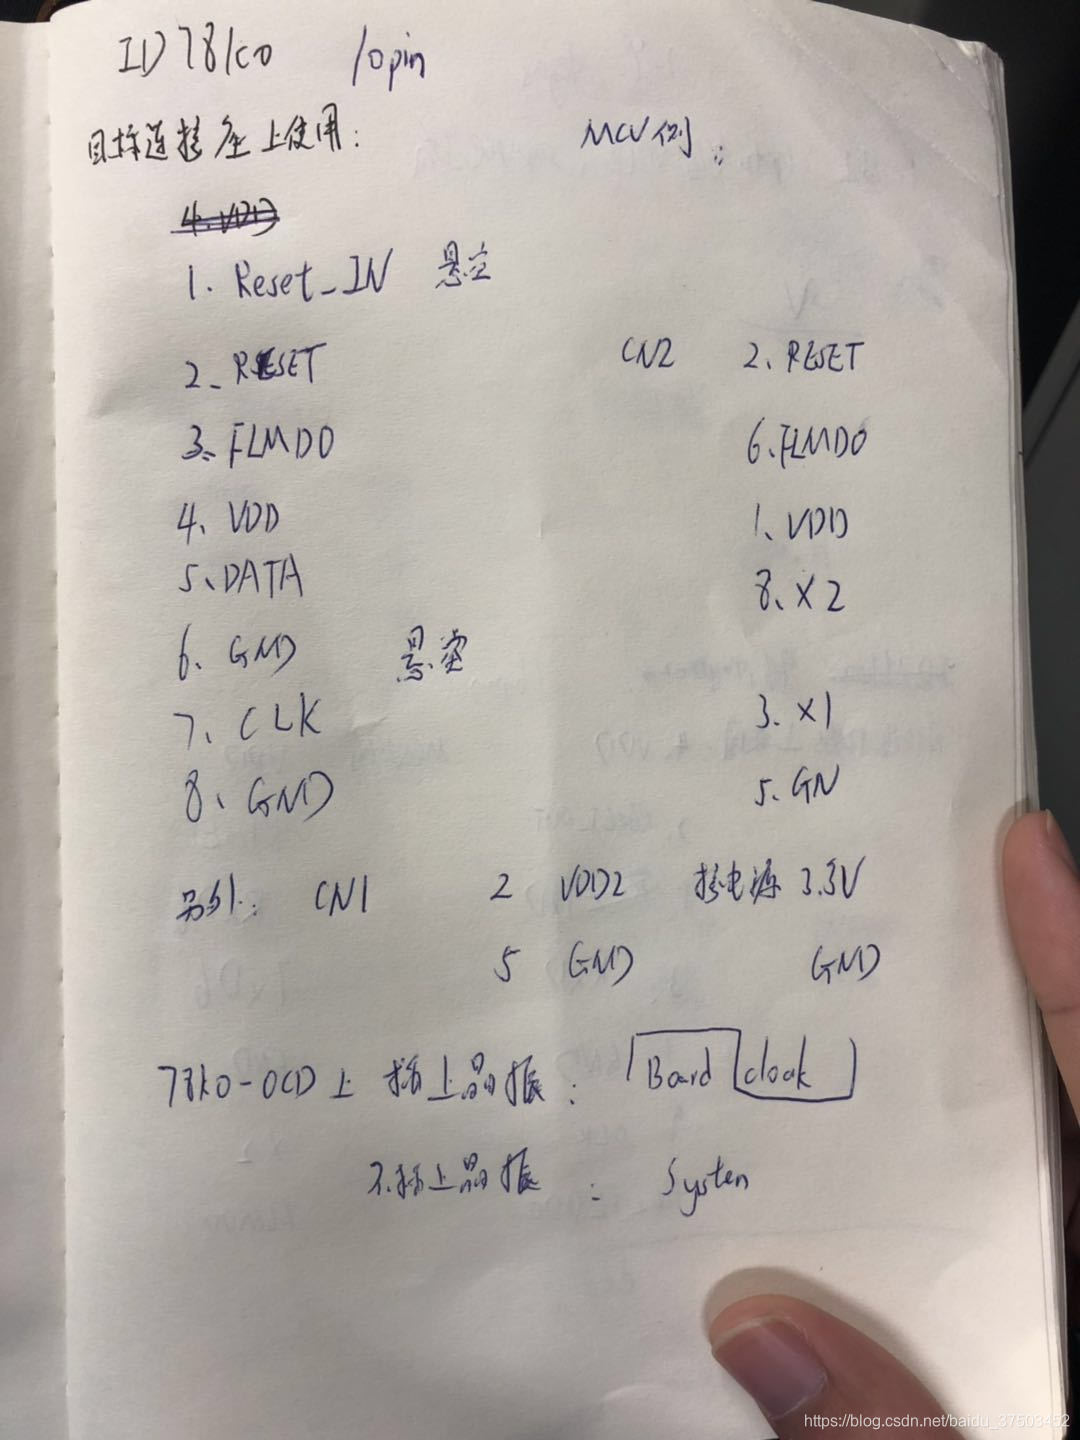 ID78K0 10pin
目标连接座上使用： MCU例：
4.VDD
1. Reset_IN 悬空
2. RESET CN2 2. RESET
3. FLMD0 6.FLMD0
4、VDD 1、VDD
5、DATA 8、X2
6. GND 悬空
7、CLK 3. X1
8、GND 5. GN
另外： CN1 2 VDD2 接电源 3.3V
5 GND GND
78K0-OCD上 插上晶振： Board clock
不插上晶振： System
https://blog.csdn.net/baidu_37503452